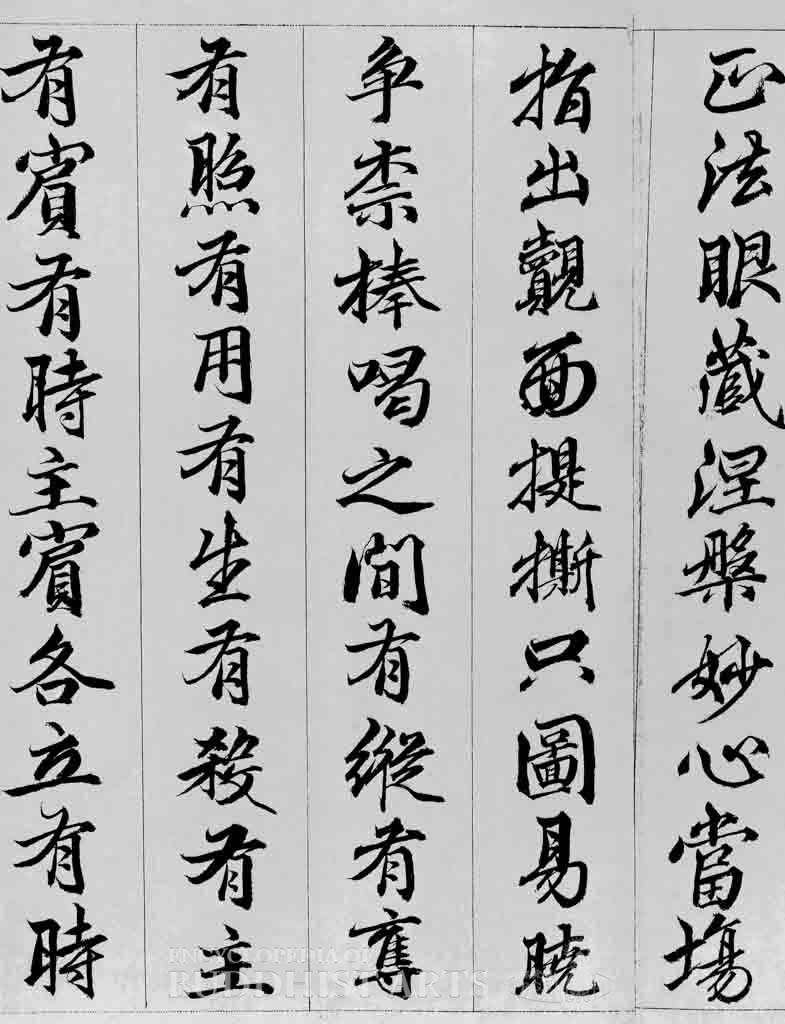 正法眼藏涅槃妙心當場
指出覿面提撕只圖易曉
争柰棒喝之間有縱有奪
有照有用有生有殺有主
有賓有時主賓各立有時
ENCYCLOPEDIA OF
BUDDHIST ARTS